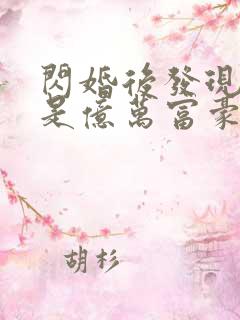 閃婚後發現
是億萬富豪
胡杉